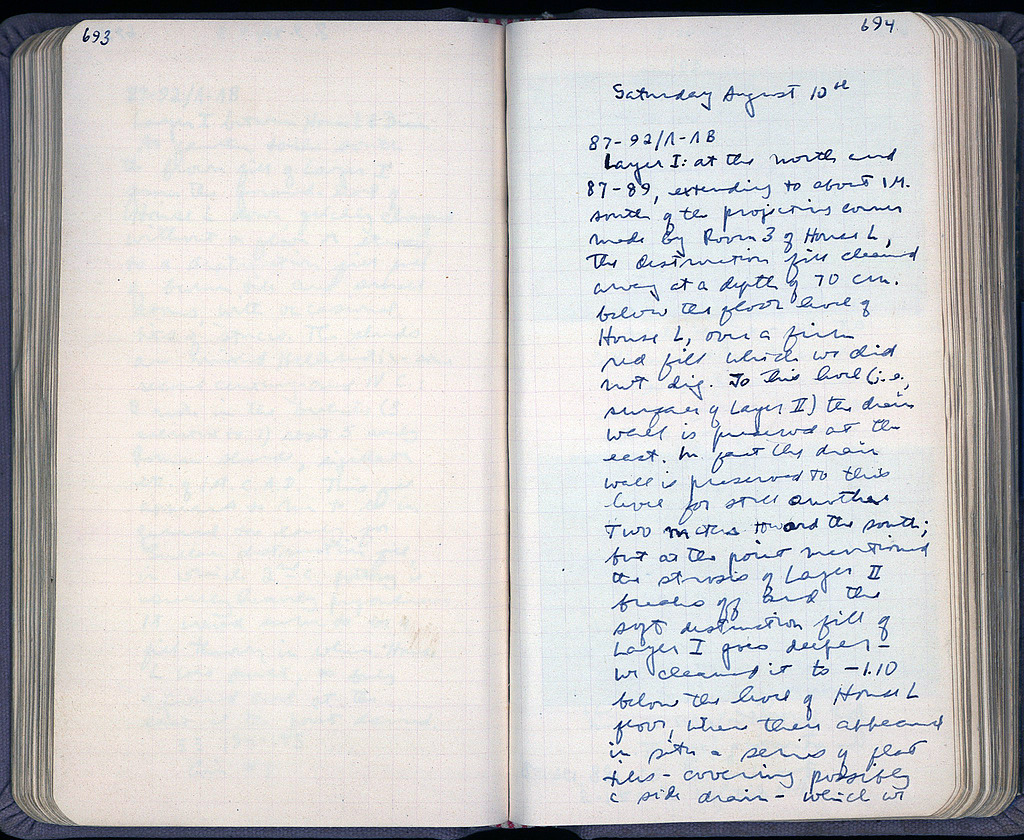 693
694
Saturday August 10th
87-92/Λ-ΛB
Layer I: at the north end
87-89, extending to about 1 M.
south of the projecting corner
made by Room 3 of House L,
the destruction fill cleaned
away at a depth of 70 cm.
below the floor level of
House L, over a firm
red fill which we did
not dig. To this level (i.e.,
surface of Layer II) the drain
wall is preserved at the
east. In fact the drain
wall is preserved to this
level for still another
two metres toward the south;
but at the point mentioned
the strosis of Layer II
breaks off and the
soft destruction fill of
Layer I goes deeper -
we cleaned it to -1.10
below the level of House L
floor, when there appeared
in situ a series of flat
tiles - covering possibly
a side drain - which we